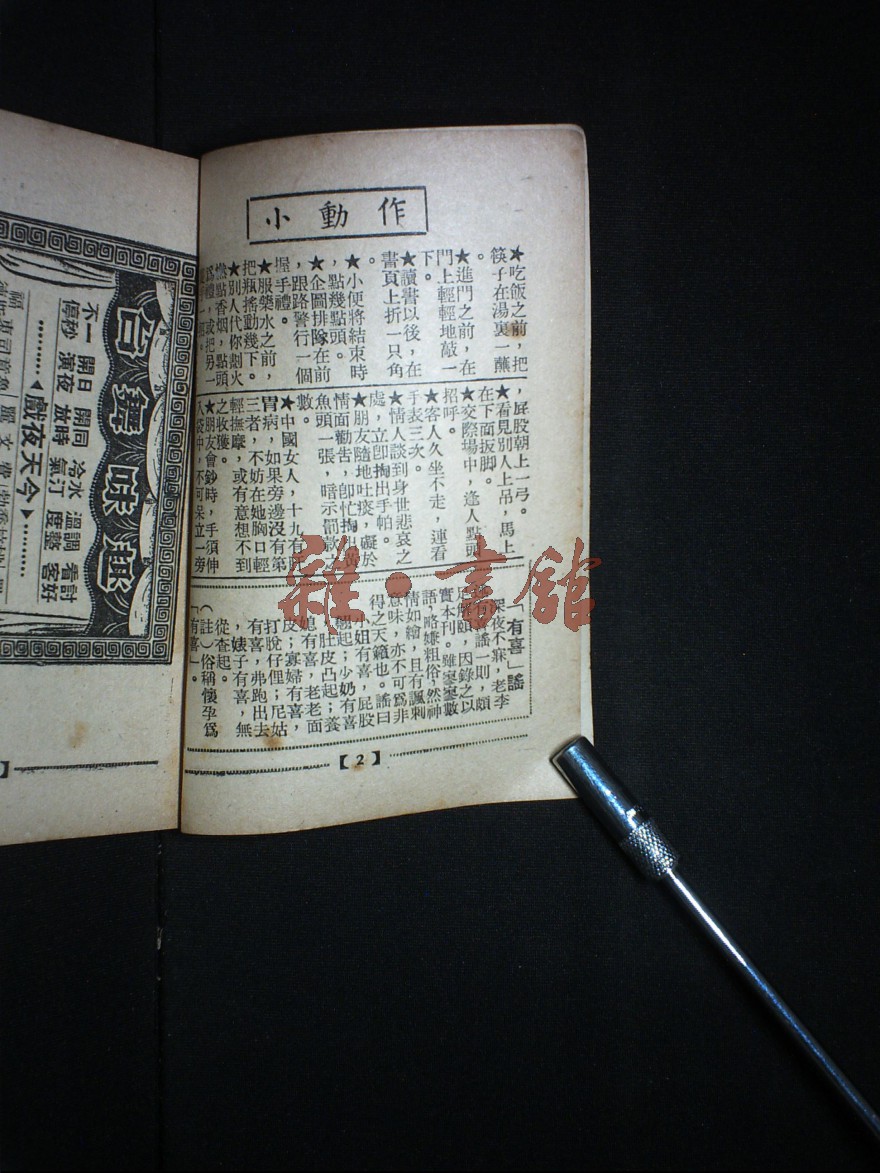 小動作
★吃飯之前，把
筷子在湯裏一蘸
★進門之前，在
門上輕輕地敲一
下。
★讀書以後，在
書頁上折一只角
。
★小便將結束時
，點幾點頭。
★企圖排隊在前
，跟路警行一個
握手禮。
★服藥水之前，
把瓶搖動幾下。
★別人代你劃火
燃點香烟，點頭
爲禮，或把另一
，屁股朝上一弓。
★看見別人上吊，馬上
在下面扳脚。
★交際場中，逢人點頭
招呼。
★客人久坐不走，連看
手表三次。
★情人談到身世悲哀之
處，立卽掏出手帕。
★朋友隨地吐痰，礙於
情面勸告，卽忙掏出黃
魚頭一張，暗示罰款之
數。
★中國女人，十九有肝
胃病，如果旁邊沒有第
三者，不妨在她胸口輕
輕撫摩，或有意想不到
之收獲。
★朋友會鈔時，手須伸
入袋中，不可呆立一旁
「有喜」謠
深夜不寐，老李
有謠一則，頗
足解頤，因錄之以
實本刊。雖寥寥數
語，略嫌粗俗，然神
情如繪，且有諷刺
意味，亦不可爲非
得之天籟也。謠曰
小姐有喜，屁股
翹起；少奶有喜
，肚皮凸起；養
媳有喜，老老面
皮；寡婦有喜，
打脫仔俚；尼姑
有喜，弗跑出去
，婊子有喜，無
從查起。
（註）俗稱懷孕爲
「有喜」。
【2】
趣味舞台
一不 日開 同開 水冷 調溫 討看
秒停 夜演 時放 汀氣 憝度 好客
今天夜戲
雜·書館